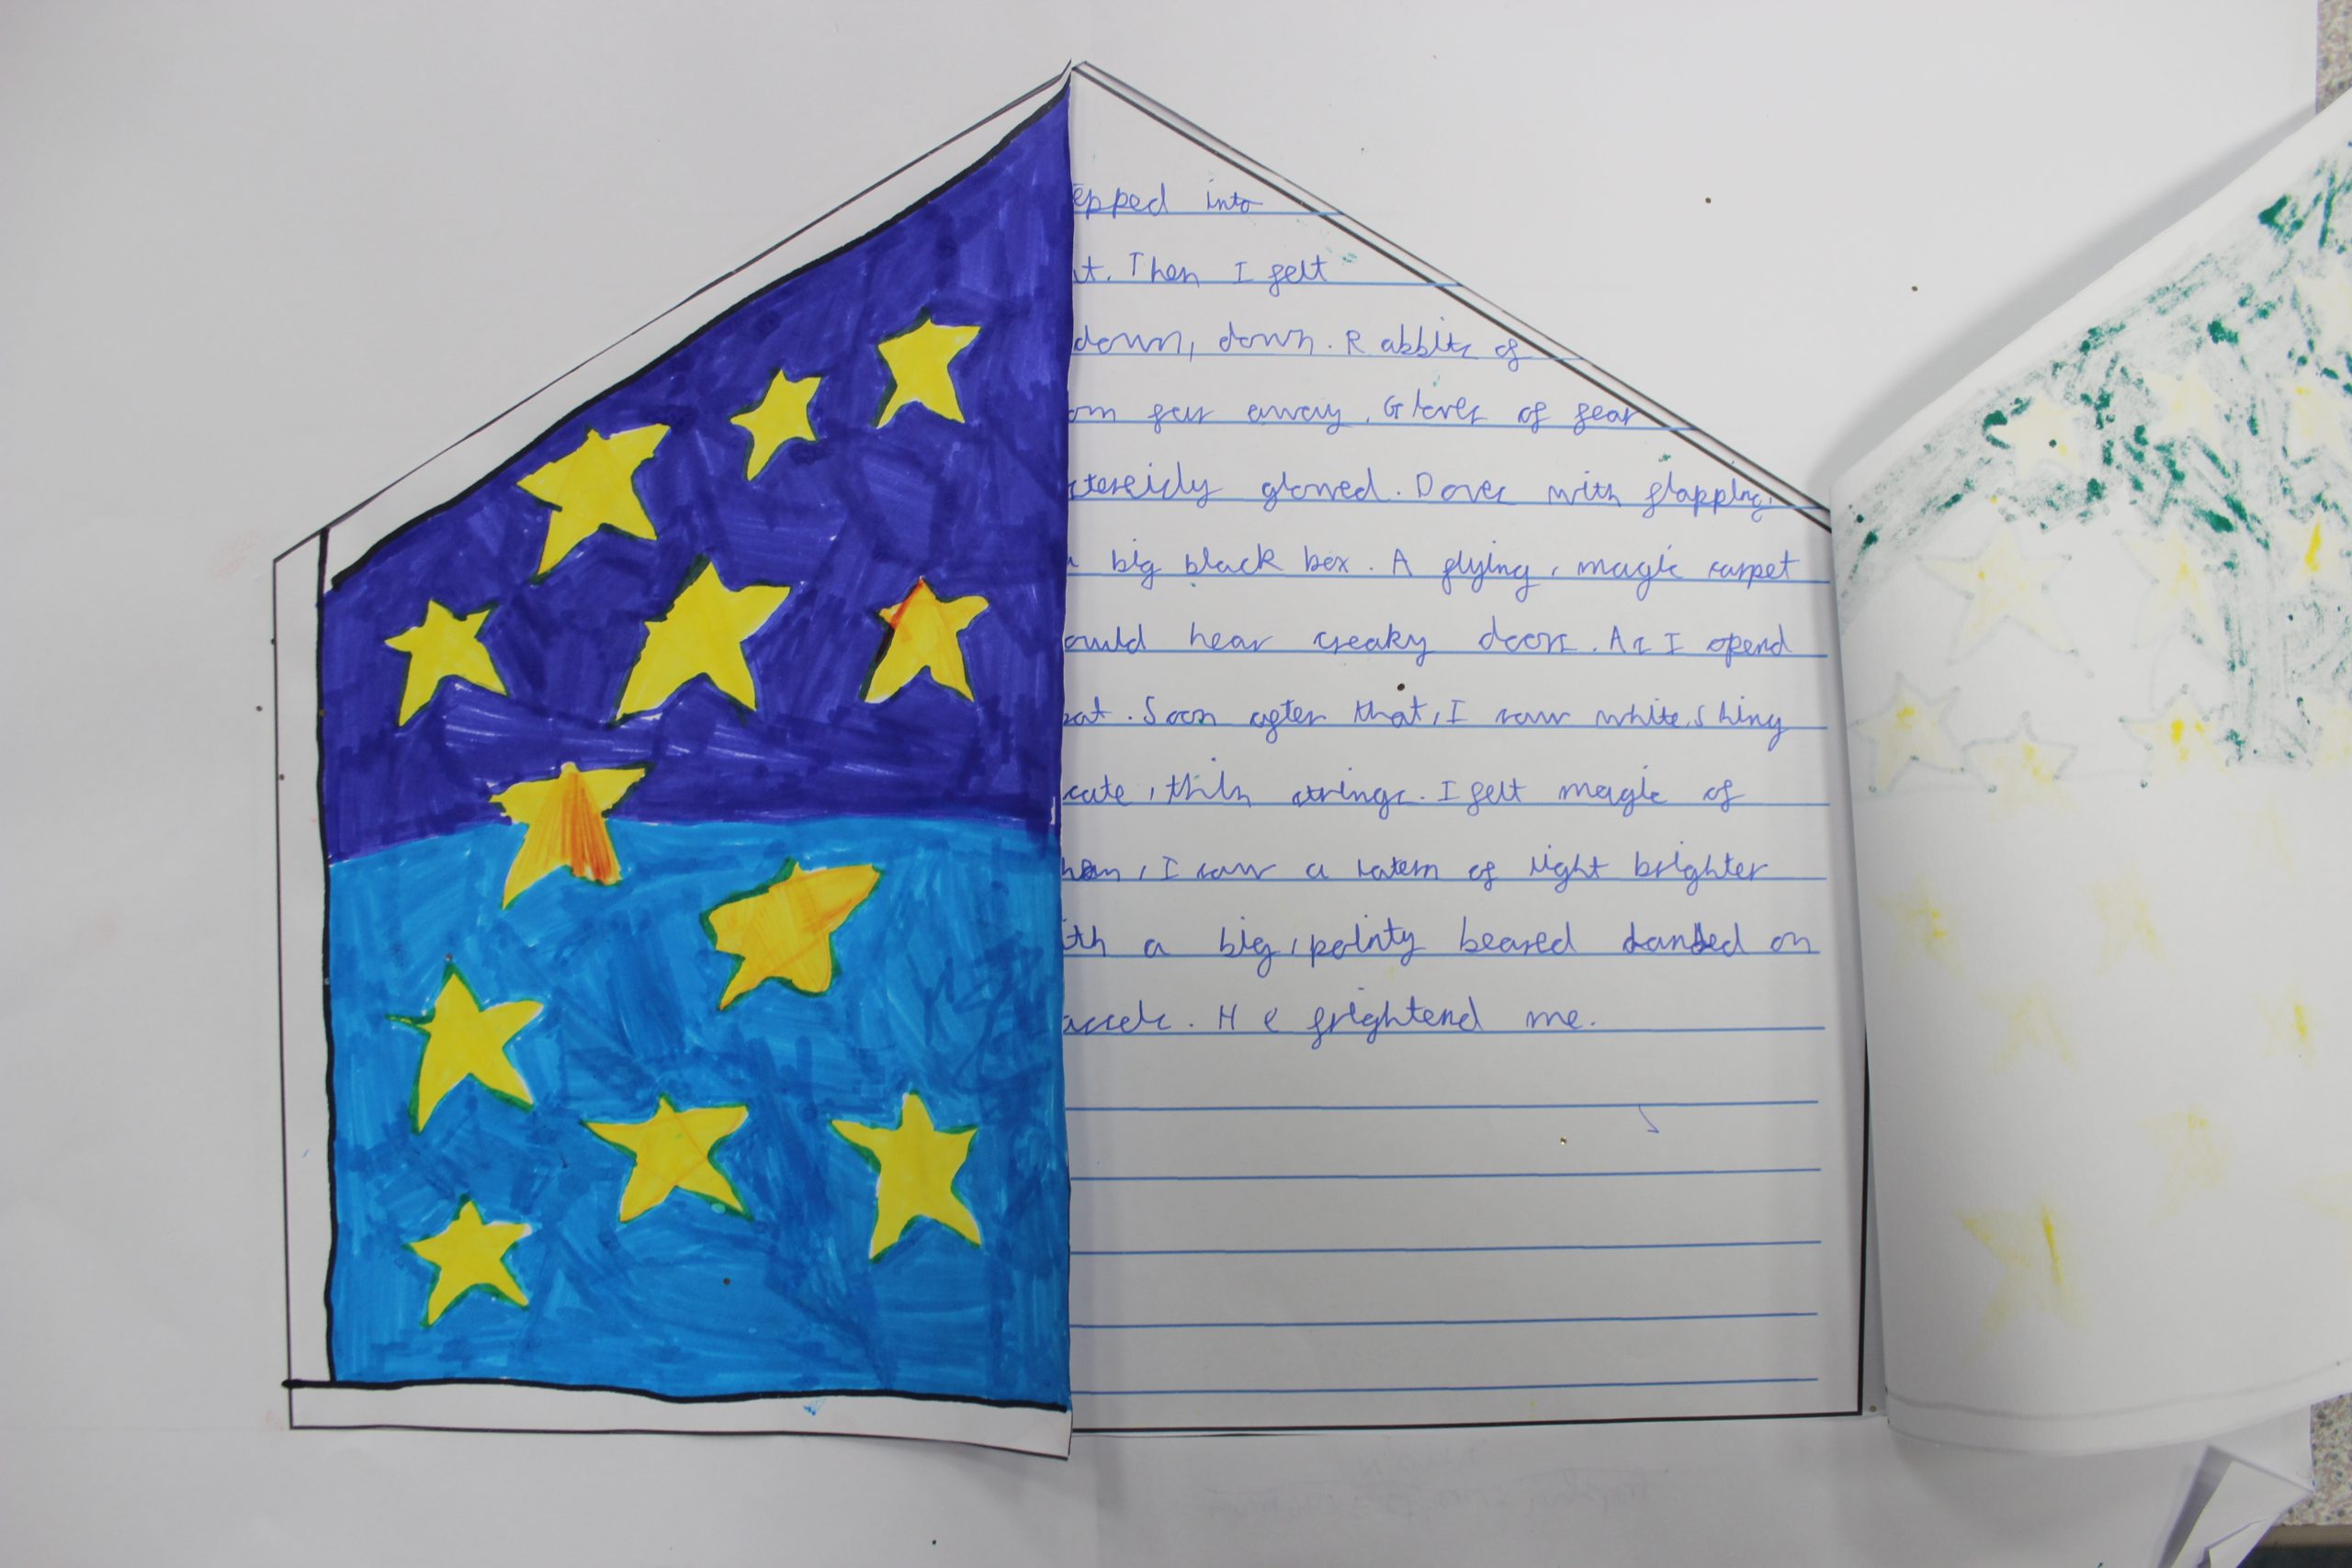 epped into
t. Then I felt
down, down. Rabbits of
om far away. Gloves of fear
stereidy glowed. Doves with flapping,
a big black box. A flying, magic carpet
ould hear creaky doors. As I opend
oat. Soon after that, I saw white, shiny
cate, thin strings. I felt magic of
hen, I saw a latern of light brighter
ith a big, pointy beared danded on
assels. He frightend me.